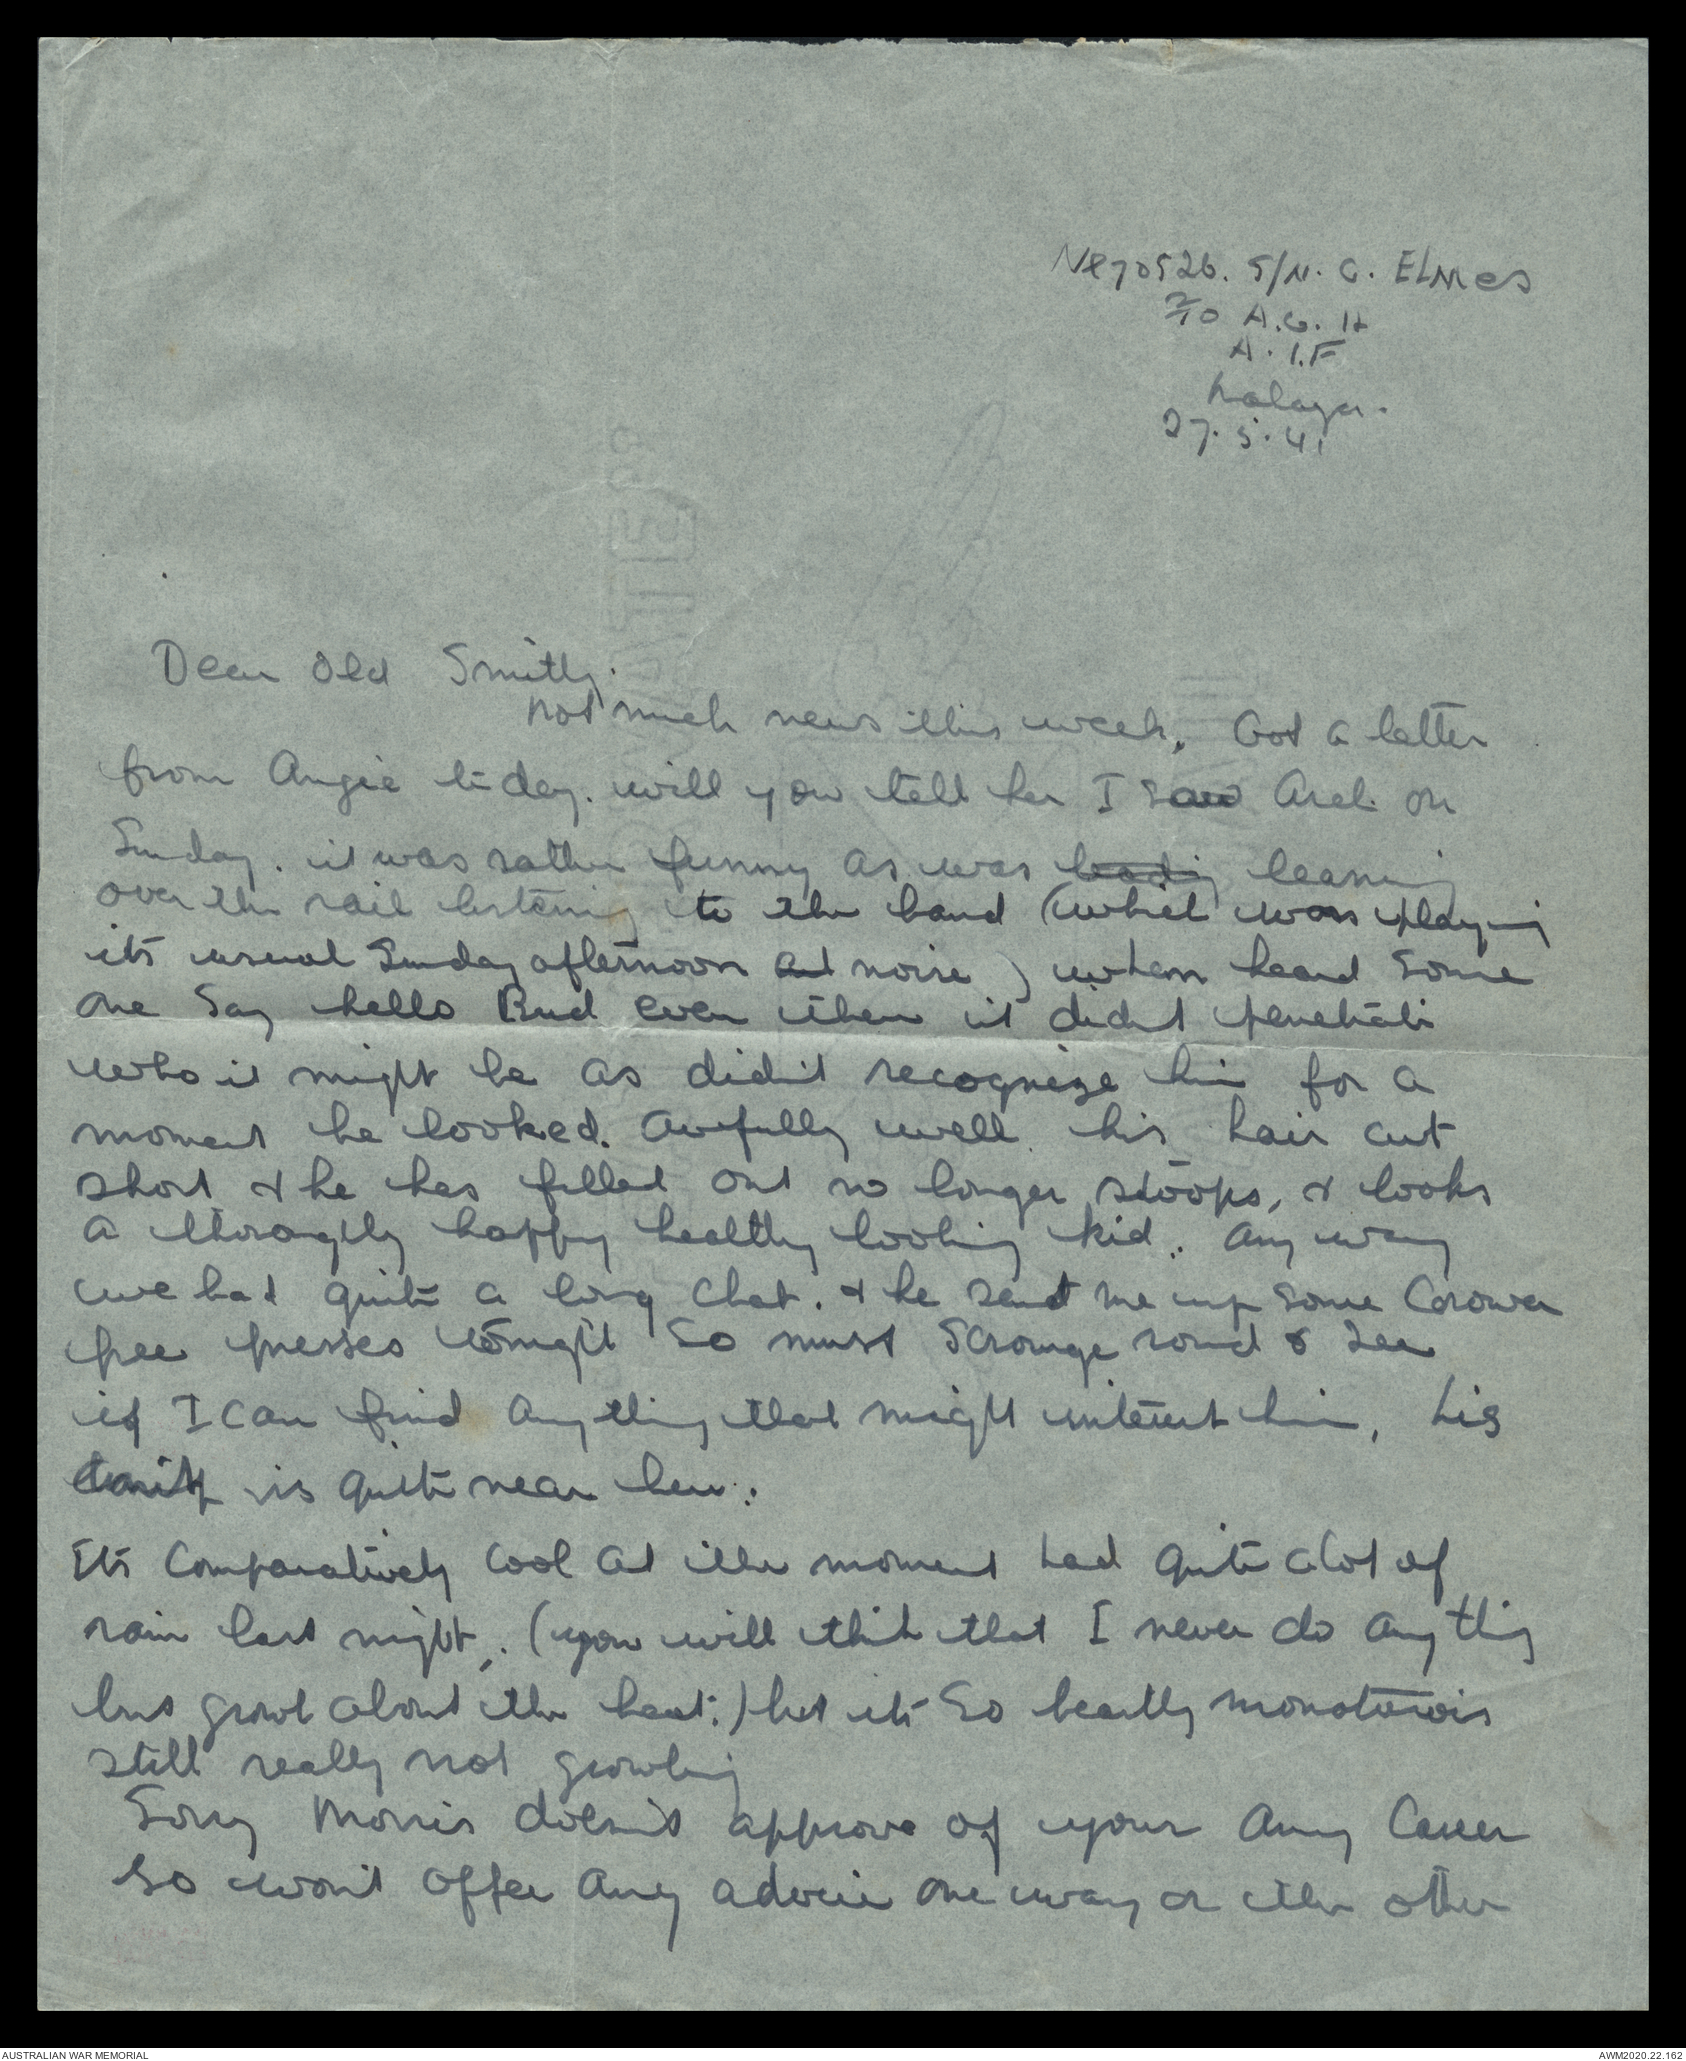 NX70526. S/N. C. ELMES
2/10 A.G.H
A.I.F
Malaya.
27.5.41
Dear Old Smithy.
Not much news this week. Got a letter
from Angie to day. will you tell her I saw Arch on
Sunday. it was rather funny as was leaning
over the rail listening to the band (which was playing
its usual Sunday afternoon noise) when heard some
one say hello Bud even then it didn't penetrate
who it might be as didn't recognize him for a
moment he looked. awfully well his hair cut
short & he has filled out no longer stoops, & looks
a thoroughly happy healthy looking kid. any way
we had quite a long chat. & he send me up some Corowa
free presses tonight so must scrounge round & see
if I can find anything that might interest him, his
unit is quite near here.
Its comparatively cool at the moment had quite a lot of
rain last night. (you will think that I never do any thing
but growl about the heat.) but its so beastly monotonous
still really not growling
Sorry Morris doesn't approve of your Army Career
so won't offer any advice one way or the other
AUSTRALIAN WAR MEMORIAL
AWM2020.22.162